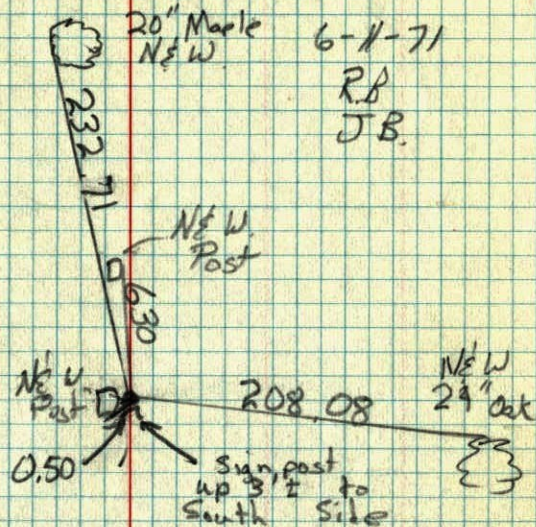 20" Maple
N&W
6-11-71
RB
JB.
232.71
N&W.
Post
6.30
N&W
Post
208.08
N&W
24" Oak
0.50
sign post
up 3'± to
South Side